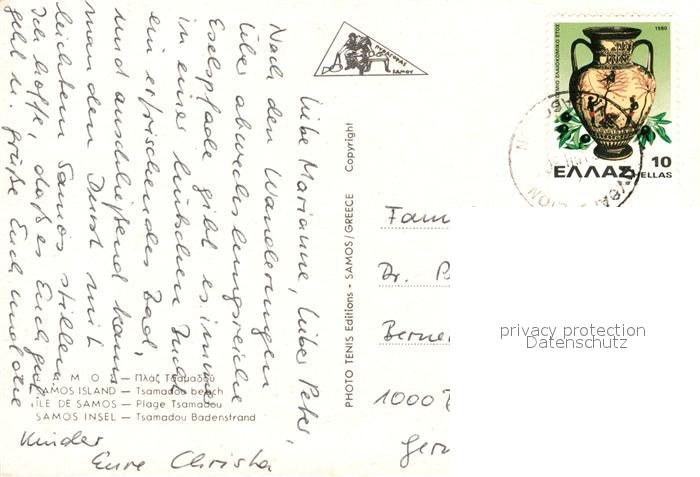 Liebe Marianne, lieber Peter,
Nach den Wanderungen
über abwechslungsreiche
Eselspfade gibt es immer
in einer hübschen Bucht
ein erfrischendes Bad,
und anschließend kann
man den Durst mit
leichtem Samos stillen.
Ich hoffe, daß es Euch gut
geht u. grüße Euch und die
Kinder
Eure Christa
ΣΑΜΟΣ — Πλάζ Τσαμαδού
SAMOS ISLAND — Tsamadou beach
ÎLE DE SAMOS — Plage Tsamadou
SAMOS INSEL — Tsamadou Badenstrand
PHOTO TENIS Editions - SAMOS/GREECE Copyright
SAMOY
1980
10
ΕΛΛΑΣ HELLAS
Fam
Dr.
Berne
1000
Ger
privacy protection
Datenschutz